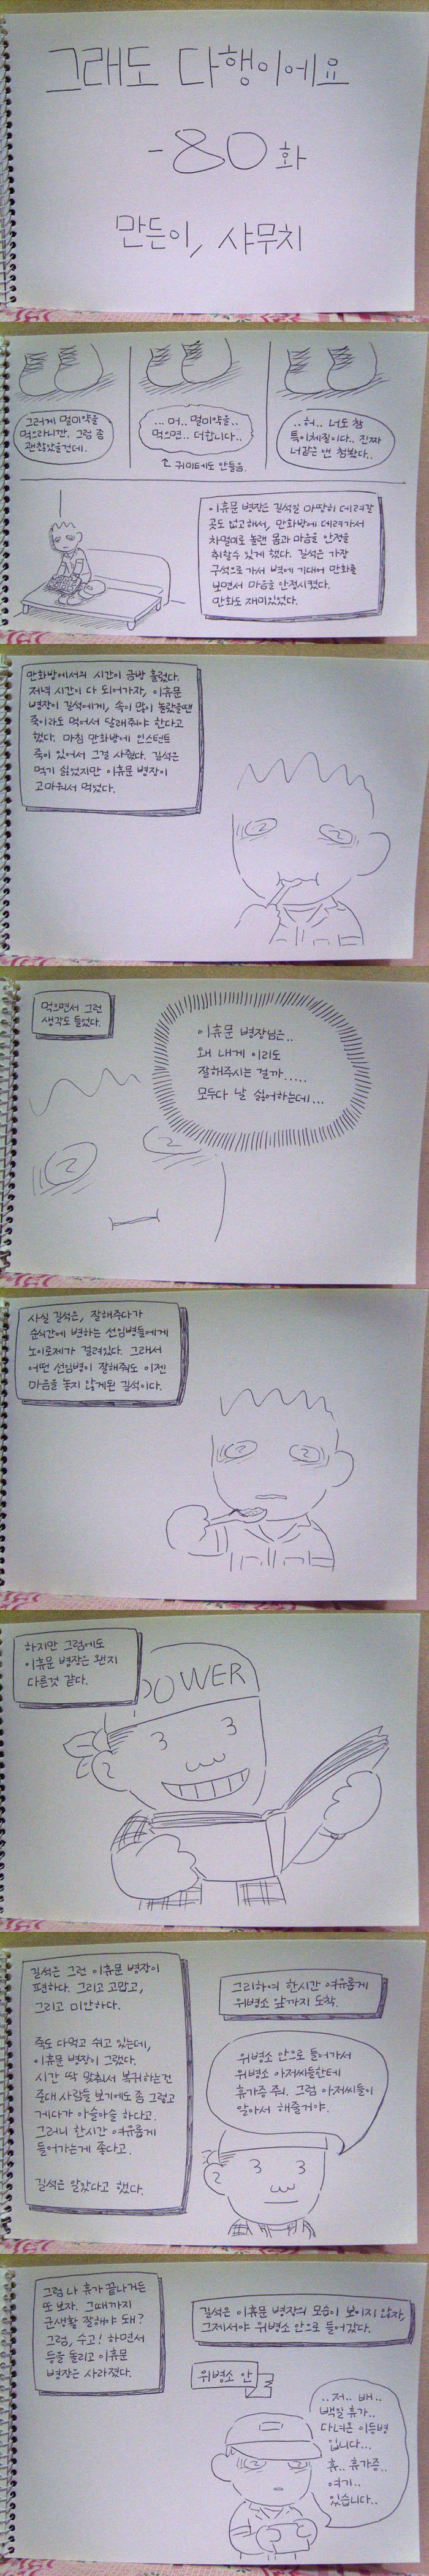 그래도 다행이에요
-80화
만든이, 샤무치
그러게 멀미약을
먹으라니깐. 그럼 좀
괜찮았을건데.
...머.. 멀미약을..
먹으면.. 더합니다..
귀미테도 안들음.
..허.. 너도 참
특이체질이다.. 진짜
너같은 앤 첨봤다..
이휴문 병장은 길석일 마땅히 데려갈
곳도 없고해서, 만화방에 데려가서
차멀미로 놀랜 몸과 마음을 안정을
취할수 있게 했다. 길석은 가장
구석으로 가서 벽에 기대어 만화를
보면서 마음을 안정시켰다.
만화도 재미있었다.
만화방에서의 시간이 금방 흘렀다.
저녁 시간이 다 되어가자, 이휴문
병장이 길석에게, 속이 많이 놀랐을땐
죽이라도 먹어서 달래줘야 한다고
했다. 마침 만화방에 인스턴트
죽이 있어서 그걸 사줬다. 길석은
먹기 싫었지만 이휴문 병장이
고마워서 먹었다.
먹으면서 그런
생각도 들었다.
이휴문 병장님은..
왜 내게 이리도
잘해주시는 걸까.....
모두다 날 싫어하는데...
사실 길석은, 잘해주다가
순식간에 변하는 선임병들에게
노이로제가 걸려있다. 그래서
어떤 선임병이 잘해줘도 이젠
마음을 놓지 않게된 길석이다.
하지만 그럼에도
이휴문 병장은 왠지
다른것 같다.
POWER
길석은 그런 이휴문 병장이
편하다. 그리고 고맙고,
그리고 미안하다.
죽도 다먹고 쉬고 있는데,
이휴문 병장이 그랬다.
시간 딱 맞춰서 복귀하는건
중대 사람들 보기에도 좀 그렇고
게다가 아슬아슬 하다고.
그러니 한시간 여유롭게
들어가는게 좋다고.
길석은 알았다고 했다.
그리하여 한시간 여유롭게
위병소 앞까지 도착.
위병소 안으로 들어가서
위병소 아저씨들한테
휴가증 줘. 그럼 아저씨들이
알아서 해줄거야.
그럼 나 휴가 끝나거든
또 보자. 그때까지
군생활 잘해야 돼?
그럼, 수고! 하면서
등을 돌리고 이휴문
병장은 사라졌다.
길석은 이휴문 병장의 모습이 보이지 않자,
그제서야 위병소 안으로 들어갔다.
위병소 안
..저.. 배..
백일 휴가..
다녀온 이등병
입니다...
휴.. 휴가증..
여기..
있습니다..